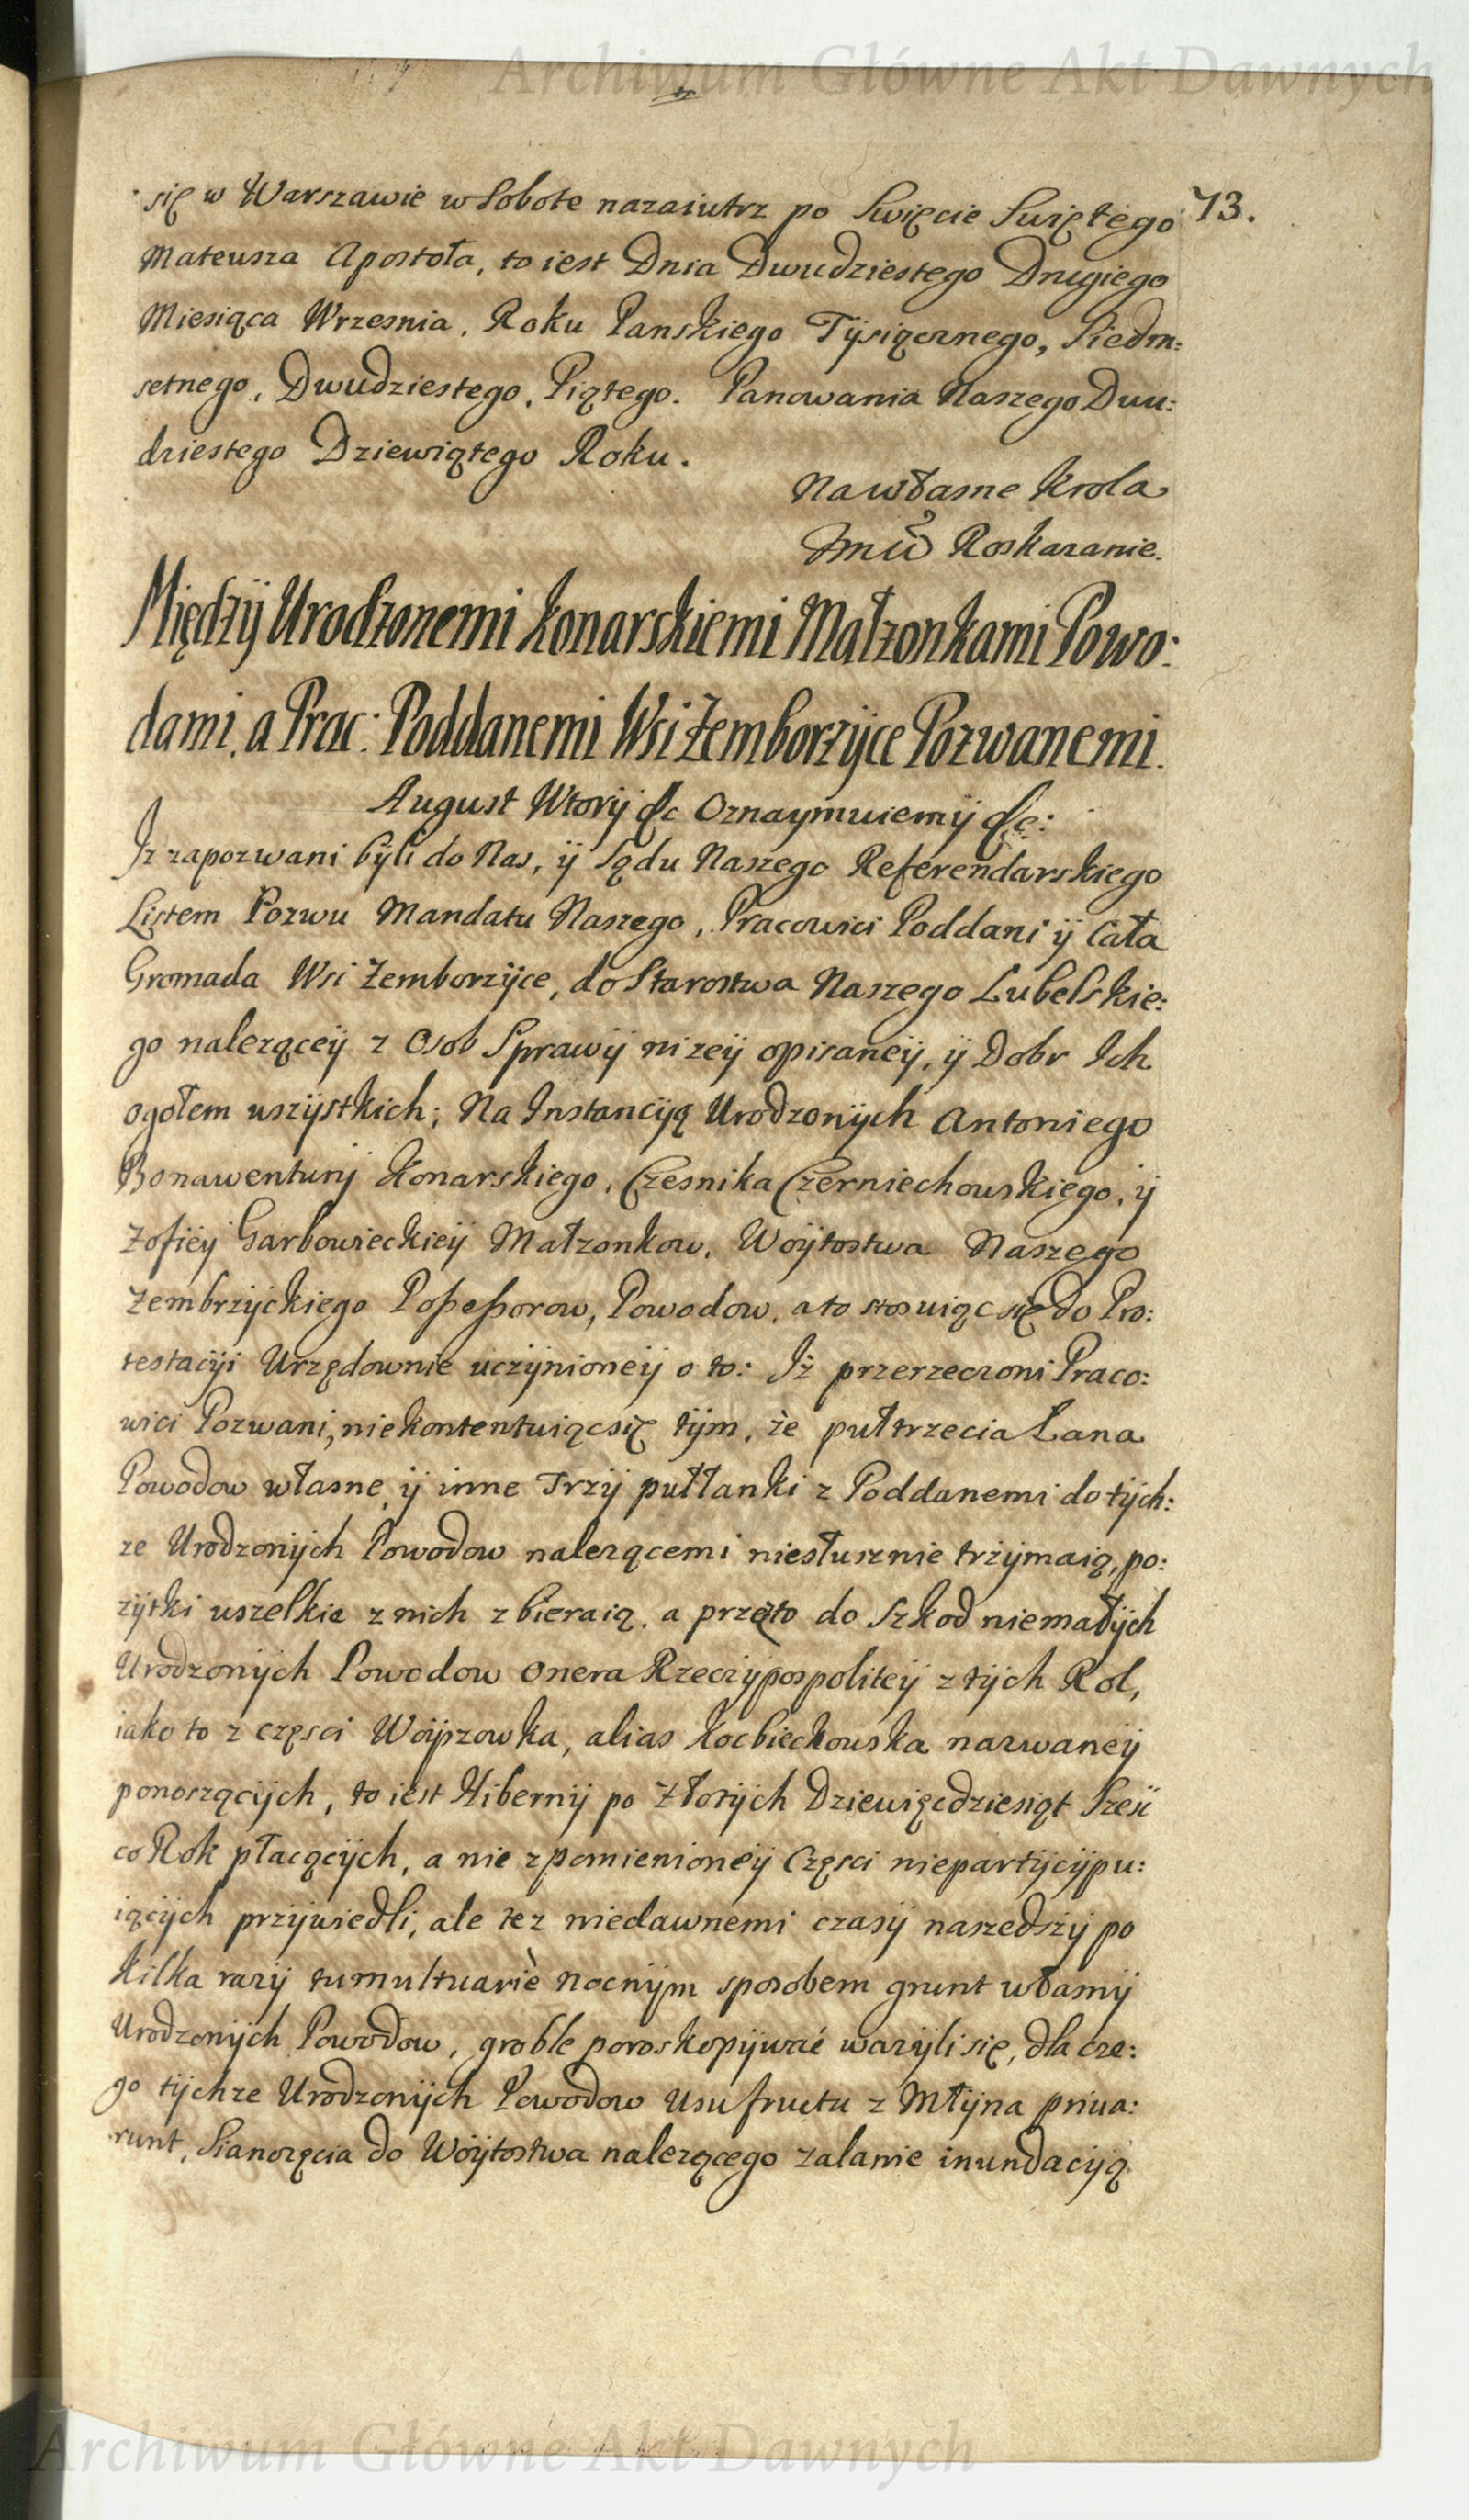 Archiwum Główne Akt Dawnych
się w Warszawie w Sobote nazaiutrz po Swięcie Swiętego 73.
Mateusza Apostoła, to iest Dnia Dwudziestego Drugiego
Miesiąca Wrzesnia, Roku Panskiego Tÿsiącznego, Siedm:
setnego, Dwudziestego, Piątego. Panowania Naszego Dwu:
dziestego Dziewiątego Roku.
Na własne Krola
Jmci Roskazanie.
Międzÿ Urodzonemi Konarskiemi Małzonkami Powo:
dami, a Prac: Poddanemi Wsi Zemborzÿce Pozwanemi.
August Wtorÿ &c Oznaymuiemÿ &c:
Iz zapozwani bÿli do Nas, ÿ Sądu Naszego Referendarskiego
Listem Pozwu Mandatu Naszego, Pracowici Poddani ÿ Cała
Gromada Wsi Zemborzÿce, do Starostwa Naszego Lubelskie:
go naleząceÿ z Osob Sprawÿ nizeÿ opisaneÿ, ÿ Dobr Ich
ogołem wszÿstkich; Na Instancÿą Urodzonÿch Antoniego
Bonawenturÿ Konarskiego, Czesnika Czerniechowskiego, ÿ
Zofiëy Garbowieckieÿ Małzonkow, Woÿtostwa Naszego
Zembrzÿckiego Possessorow, Powodow, a to stosuiąc się do Pro:
testacÿi Urzędownie uczÿnioneÿ o to: Iż przerzeczoni Praco:
wici Pozwani, niekontentuiąc się tÿm, że pułtrzecia Łana
Powodow własne, ÿ inne Trzÿ pułłanki z Poddanemi do tÿch:
ze Urodzonÿch Powodow nalezącemi niesłusznie trzÿmaią, po:
zÿtki wszelkie z nich zbieraią, a przęto do Szkod niemałÿch
Urodzonÿch Powodow Onera Rzeczÿpospoliteÿ z tÿch Rol,
iako to z częsci Woÿzowka, alias Kocbiechowska nazwaneÿ
ponoszącÿch, to iest Hibernÿ po Złotÿch Dziewięcdziesiąt Szesc
co Rok płacącÿch, a nie z pomienioneÿ Częsci niepartÿcÿpu:
iącÿch przÿwiedli, ale tez niedawnemi czasÿ naszedszÿ po
kilka razÿ tumultuariè nocnÿm sposobem grunt własnÿ
Urodzonÿch Powodow, groble poroskopÿwać wazÿli się, dla cze:
go tÿchze Urodzonÿch Powodow Usufructu z Młÿna priua:
runt, Sianozęcia do Woÿtostwa nalezącego zalanie inundacÿą
Archiwum Główne Akt Dawnych